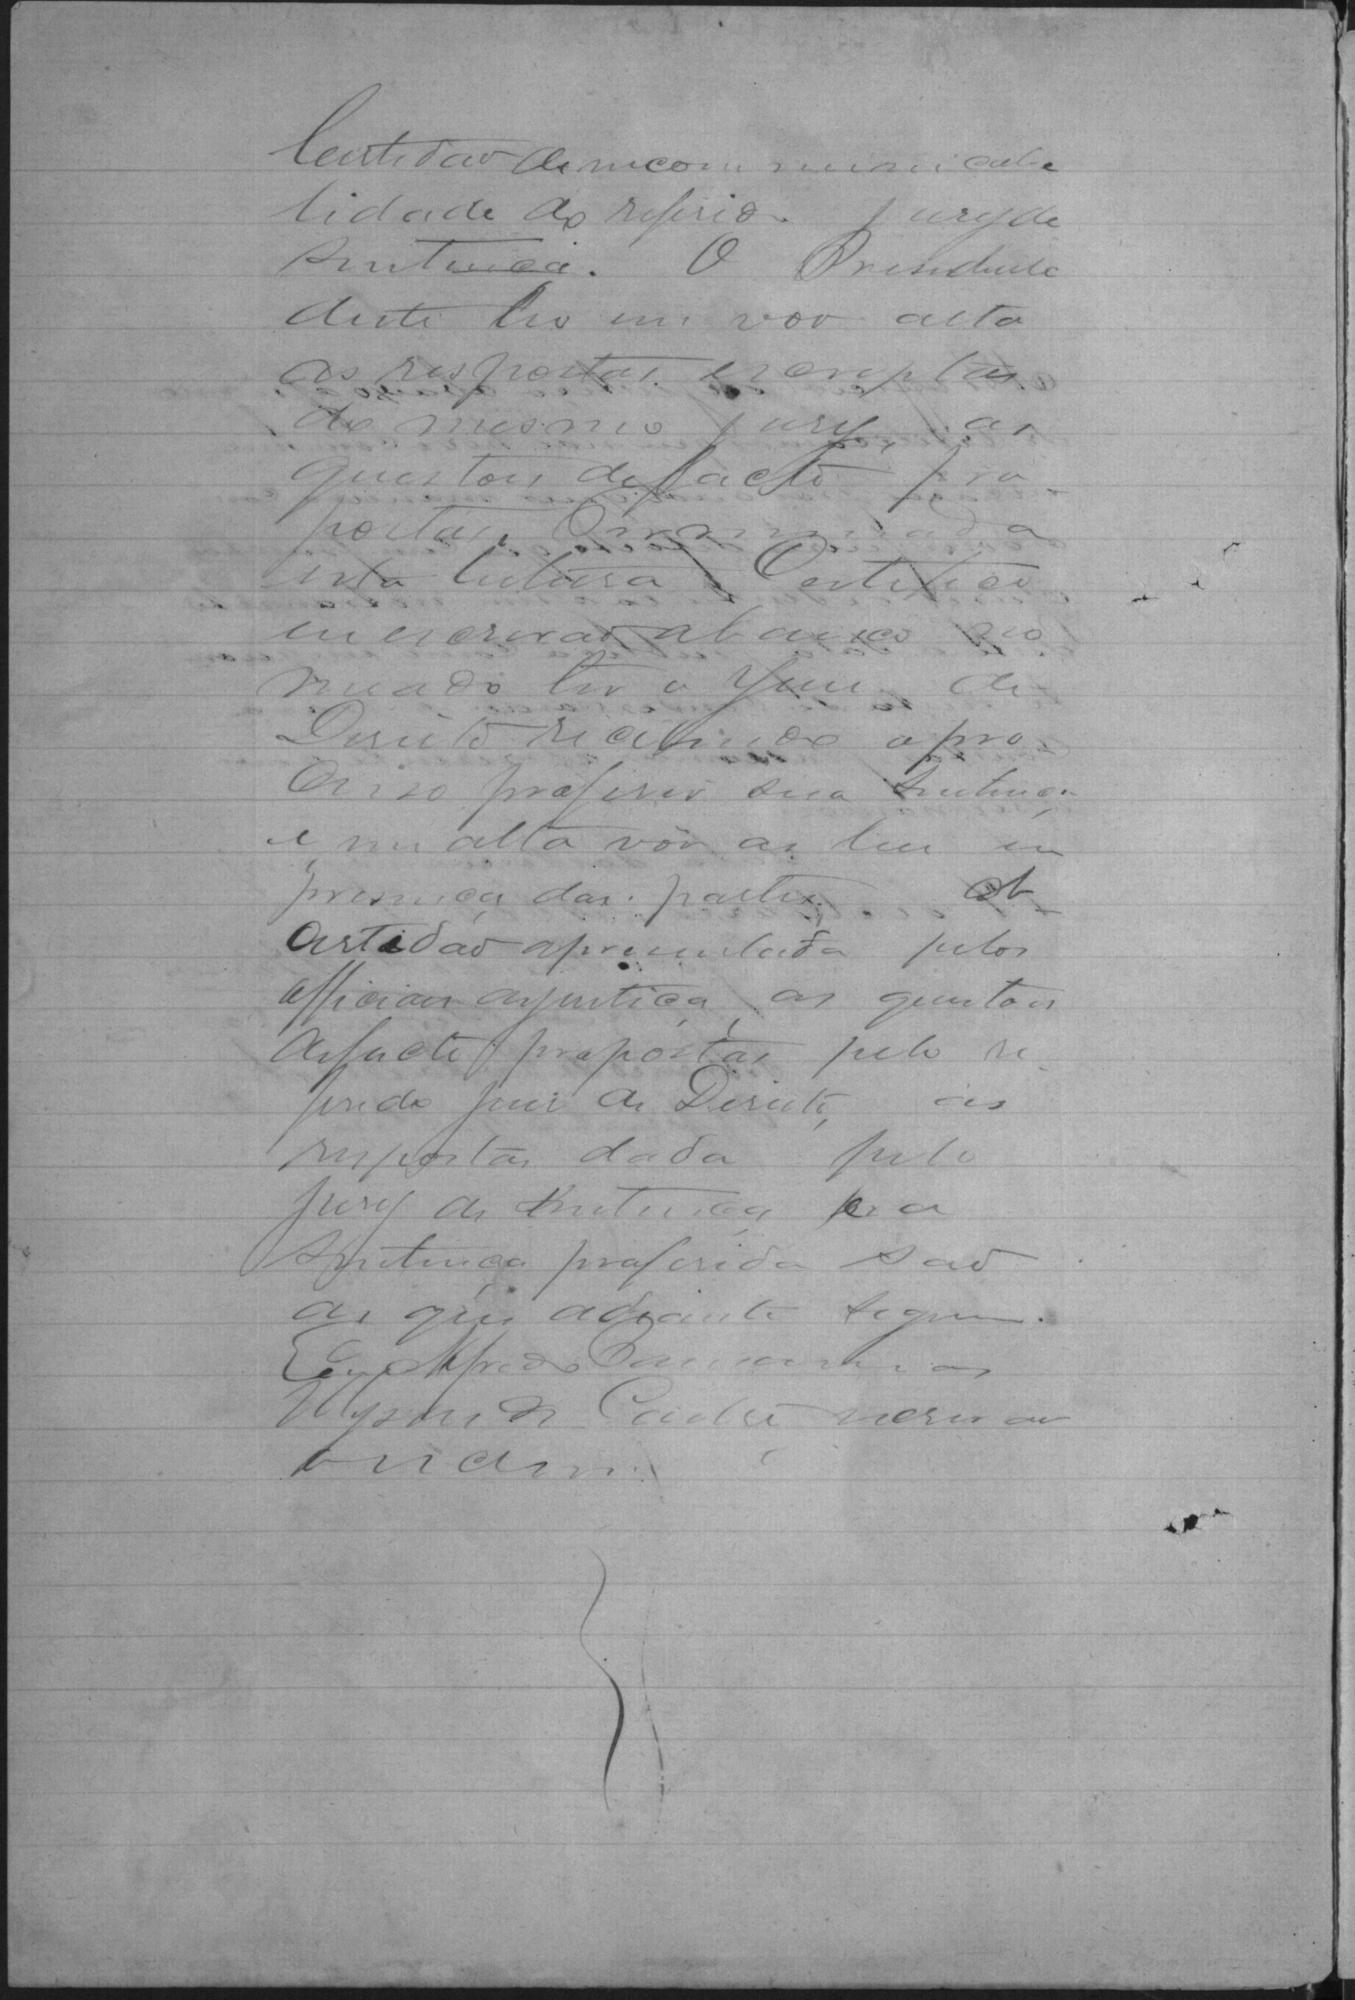 Certidão de incommunicabi
lidade do referido jury de
sentença. O Presidente
deste leo em voz alta
as respostas escriptas
do mesmo jury, as
questões de facto pro
postas. Terminada
esta leitura, Certifico
eu escrivão abaixo no
meado leo o Juiz de
Direito recebendo o pro
cesso proferio sua sentença
e em alta voz as leu em
presença das partes. A
certidão apresentada pelos
officiaes de justiça, as questões
de facto propostas pelo re
ferido juiz de Direito, as
respostas dada pelo
jury de sentença e a
sentença proferida são
as que adiante seguem.
Eu Alfredo
de Castro escrivão